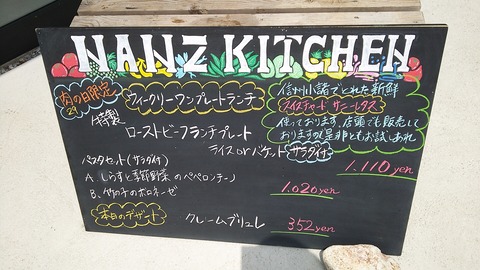 NANZ KITCHEN
肉の日限定
29
ウィークリーワンプレートランチ
特製
ローストビーフランチプレート
ライスorバケット サラダ付
1.110yen
パスタセット(サラダ付)
A. しらすと季節野菜のペペロンチーノ
B. 竹の子のボロネーゼ
1.020yen
本日のデザート
クレームブリュレ
352yen
信州小諸でとれた新鮮
スイスチャード サニーレタス
使っております。店頭でも販売して
おりますので是非ともお試しあれ